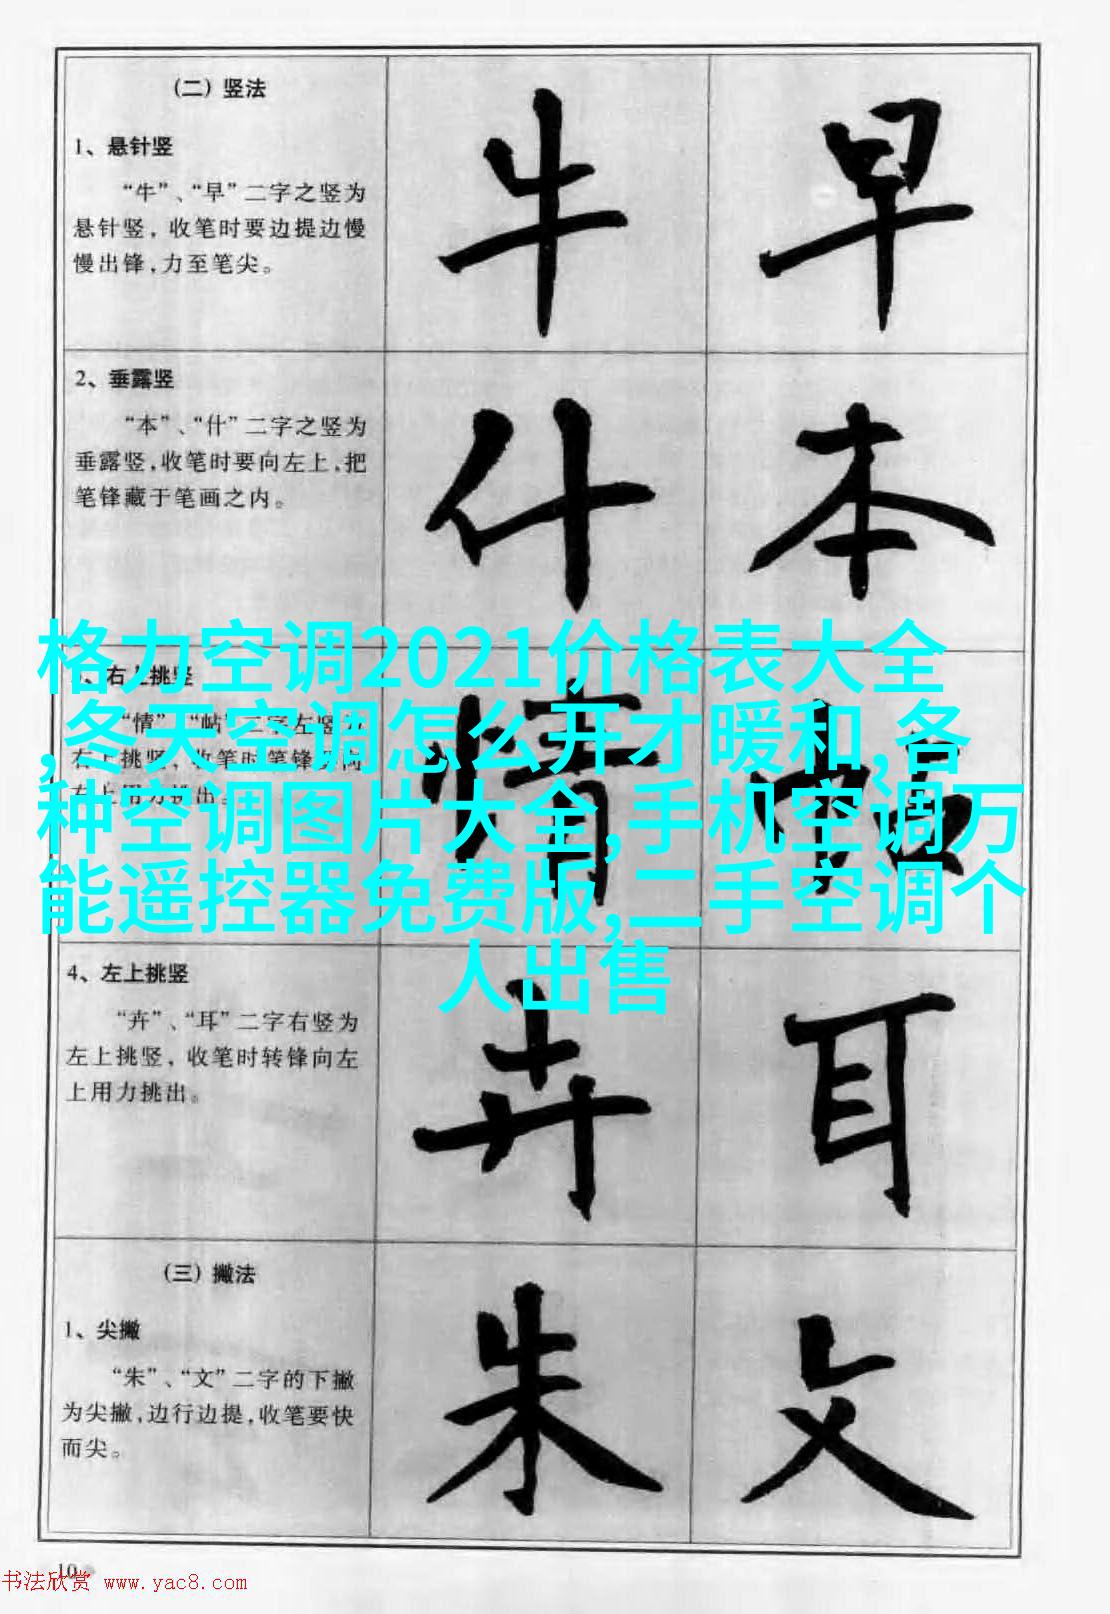 （二）竖法
1、悬针竖
“牛”、“早”二字之竖为
悬针竖，收笔时要边提边慢
慢出锋，力至笔尖。
牛
早
2、垂露竖
“本”、“什”二字之竖为
垂露竖，收笔时要向左上，把
笔锋藏于笔画之内。
什
本
格力空调2021价格表大全
,冬天空调怎么开才暖和,各
种空调图片大全,手机空调万
能遥控器免费版,二手空调个
人出售
右上挑竖
“情”、“帖”二字左竖
右上挑竖，收笔时笔锋向
右上用力挑出。
情
帖
4、左上挑竖
“卉”、“耳”二字右竖为
左上挑竖，收笔时转锋向左
上用力挑出。
卉
耳
（三）撇法
1、尖撇
“朱”、“文”二字的下撇
为尖撇，边行边提，收笔要快
而尖。
朱
文
10
书法欣赏 www.yac8.com